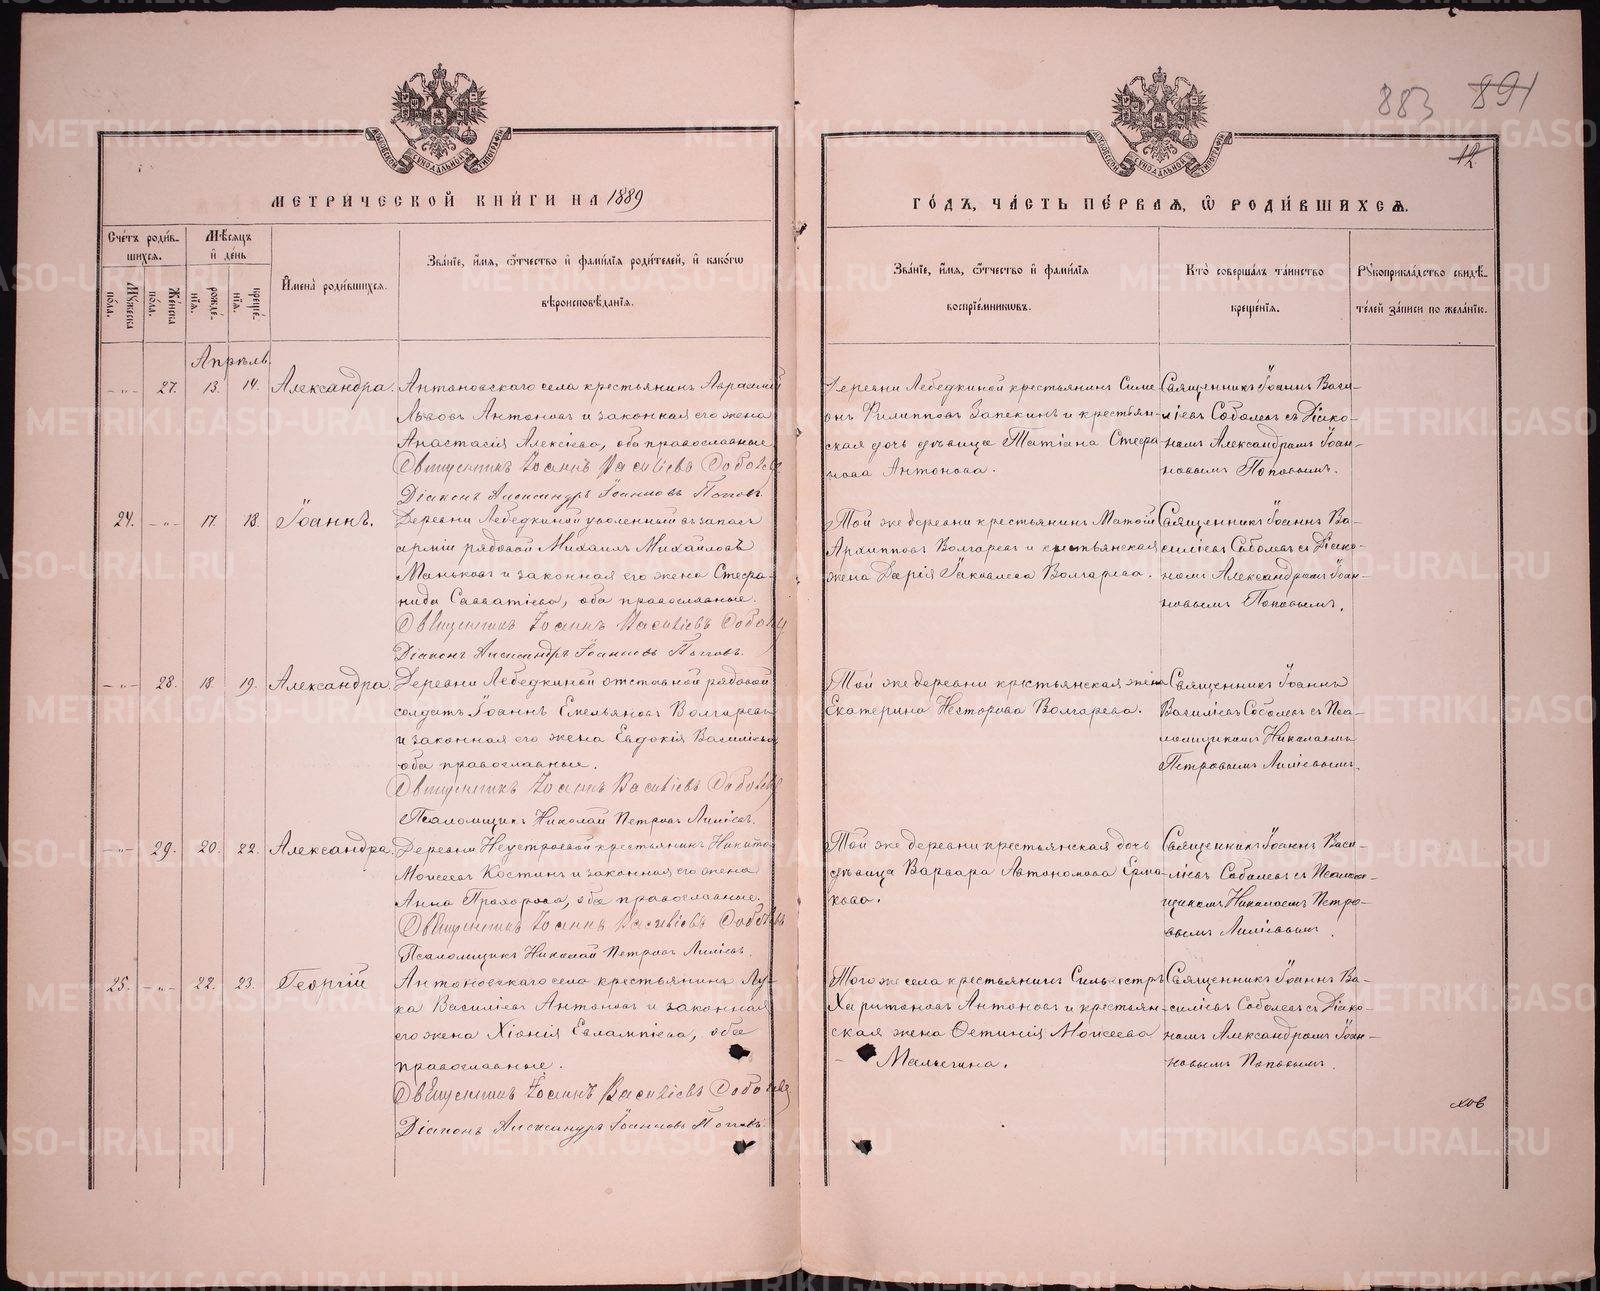 883 891
12
МОСКОВСКОЙ СѴНОДАЛЬНОЙ ТИПОГРАФІИ
МОСКОВСКОЙ СѴНОДАЛЬНОЙ ТИПОГРАФІИ
МЕТРИ́ЧЕСКОЙ КНИ́ГИ НА 1889
ГО́ДЪ, ЧА́СТЬ ПЕ́РВАѦ, Ѡ҆ РОДИ́ВШИХСѦ.
Сче́тъ роди́в-
шихся.
Мꙋжеска по́ла.
Же́нска по́ла.
Мѣ́сяцъ
и҆ де́нь
рожде́-
нїя.
креще́-
нїя.
И҆мена̀ роди́вшихся.
Зва́нїе, и҆́мя, ѻ҆́тчество и҆ фами́лїя роди́телей, и҆ како́гѡ
вѣроисповѣ́данїя.
Зва́нїе, и҆́мя, ѻ҆́тчество и҆ фами́лїя
воспрїе́мниковъ.
Кто̀ соверша́лъ та́инство
креще́нїя.
Рꙋкоприкла́дство свидѣ́-
телей за́писи по жела́нїю.
Апрѣль.
-„- 27. 13. 14. Александра.
Антоновскаго села крестьянинъ Авраамій
Львовъ Антоновъ и законная его жена
Анастасія Алексіева, оба православные.
Священникъ Іоаннъ Василіевъ Соболевъ
Діаконъ Александръ Іоанновъ Поповъ.
Деревни Лебедкиной крестьянинъ Симе-
онъ Филипповъ Запекинъ и крестьян-
ская дочь дѣвица Татіана Стефа
нова Антонова.
Священникъ Іоаннъ Васи-
ліевъ Соболевъ съ Діако-
номъ Александромъ Іоан-
новымъ Поповымъ.
24. -„- 17. 18. Іоаннъ.
Деревни Лебедкиной уволенный въ запасъ
арміи рядовой Михаилъ Михаиловъ
Маньковъ и законная его жена Стефа-
нида Савватіева, оба православные.
Священникъ Іоаннъ Василіевъ Соболевъ
Діаконъ Александръ Іоанновъ Поповъ.
Той же деревни крестьянинъ
Архипповъ Волгаревъ и крестьянская
жена Дарія Іаковлева Волгарева.
Священникъ Іоаннъ Ва-
силіевъ Соболевъ съ Діако-
номъ Александромъ Іоан-
новымъ Поповымъ.
-„- 28. 18. 19. Александра.
Деревни Лебедкиной отставной рядовой
солдатъ Іоаннъ Емельяновъ Волгаревъ
и законная его жена Евдокія Василіева
оба православные.
Священникъ Іоаннъ Василіевъ Соболевъ
Псаломщикъ Николай Петровъ Лиліевъ.
Той же деревни крестьянская жена
Екатерина Несторова Волгарева.
Священникъ Іоаннъ
Василіевъ Соболевъ съ Пса-
ломщикомъ Николаемъ
Петровымъ Лиліевымъ.
-„- 29. 20. 22. Александра.
Деревни Неустроевой крестьянинъ Никита
Моисеевъ Костинъ и законная его жена
Анна Прохорова, оба православные.
Священникъ Іоаннъ Василіевъ Соболевъ
Псаломщикъ Николай Петровъ Лиліевъ.
Той же деревни крестьянская дочь
дѣвица Варвара Автономова Ерма
кова.
Священникъ Іоаннъ Васи-
ліевъ Соболевъ съ Псалом-
щикомъ Николаемъ Петро-
вымъ Лиліевымъ.
25. -„- 22. 23. Георгій
Антоновскаго села крестьянинъ Лу-
ка Василіевъ Антоновъ и законная
его жена Хіонія Евлампіева, оба
православные.
Священникъ Іоаннъ Василіевъ Соболевъ
Діаконъ Александръ Іоанновъ Поповъ.
Того же села крестьянинъ Сильвестръ
Харитоновъ Антоновъ и крестьян-
ская жена Фетинія Моисеева
Малыгина.
Священникъ Іоаннъ Ва-
силіевъ Соболевъ съ Діако-
номъ Александромъ Іоан-
новымъ Поповымъ.
ховъ
METRIKI.GASO-URAL.RU